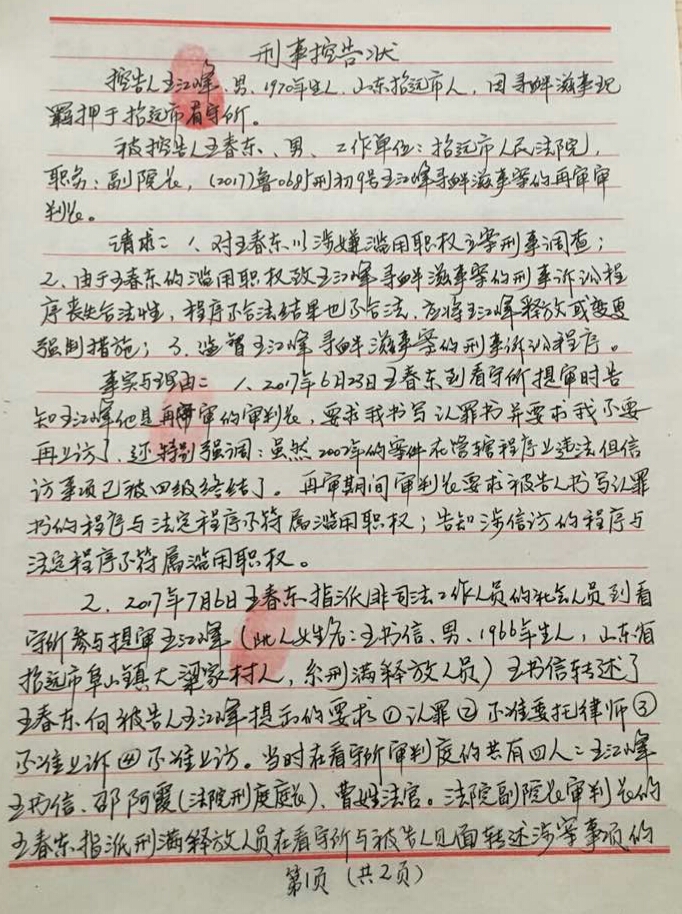 刑事控告状
控告人王江峰、男、1970年生人、山东招远市人，因寻衅滋事现
羁押于招远市看守所。
被控告人王春东、男、工作单位：招远市人民法院，
职务：副院长，(2017)鲁0685刑初9号王江峰寻衅滋事案的再审审
判长。
请求：1、对王春东以涉嫌滥用职权立案刑事调查；
2、由于王春东的滥用职权致王江峰寻衅滋事案的刑事诉讼程
序丧失合法性，程序不合法结果也不合法，应将王江峰释放或变更
强制措施；3、监督王江峰寻衅滋事案的刑事诉讼程序。
事实与理由：1、2017年6月23日王春东到看守所提审时告
知王江峰他是再审的审判长，要求我书写认罪书并要求我不要
再上访了，还特别强调：虽然2007年的案件在管辖程序上违法但信
访事项已被四级终结了。再审期间审判长要求被告人书写认罪
书的程序与法定程序不符属滥用职权；告知涉信访的程序与
法定程序不符属滥用职权。
2、2017年7月6日王春东指派非司法工作人员的社会人员到看
守所参与提审王江峰（此人姓名：王书信、男、1966年生人，山东省
招远市阜山镇大梁家村人，系刑满释放人员）王书信转述了
王春东向被告人王江峰提出的要求①认罪②不准委托律师③
不准上诉④不准上访。当时在看守所审判庭的共有四人：王江峰
王书信、邵阿霞(法院刑庭庭长)、曹姓法官。法院副院长审判长的
王春东指派刑满释放人员在看守所与被告人见面转述涉案事项的
第1页（共2页）